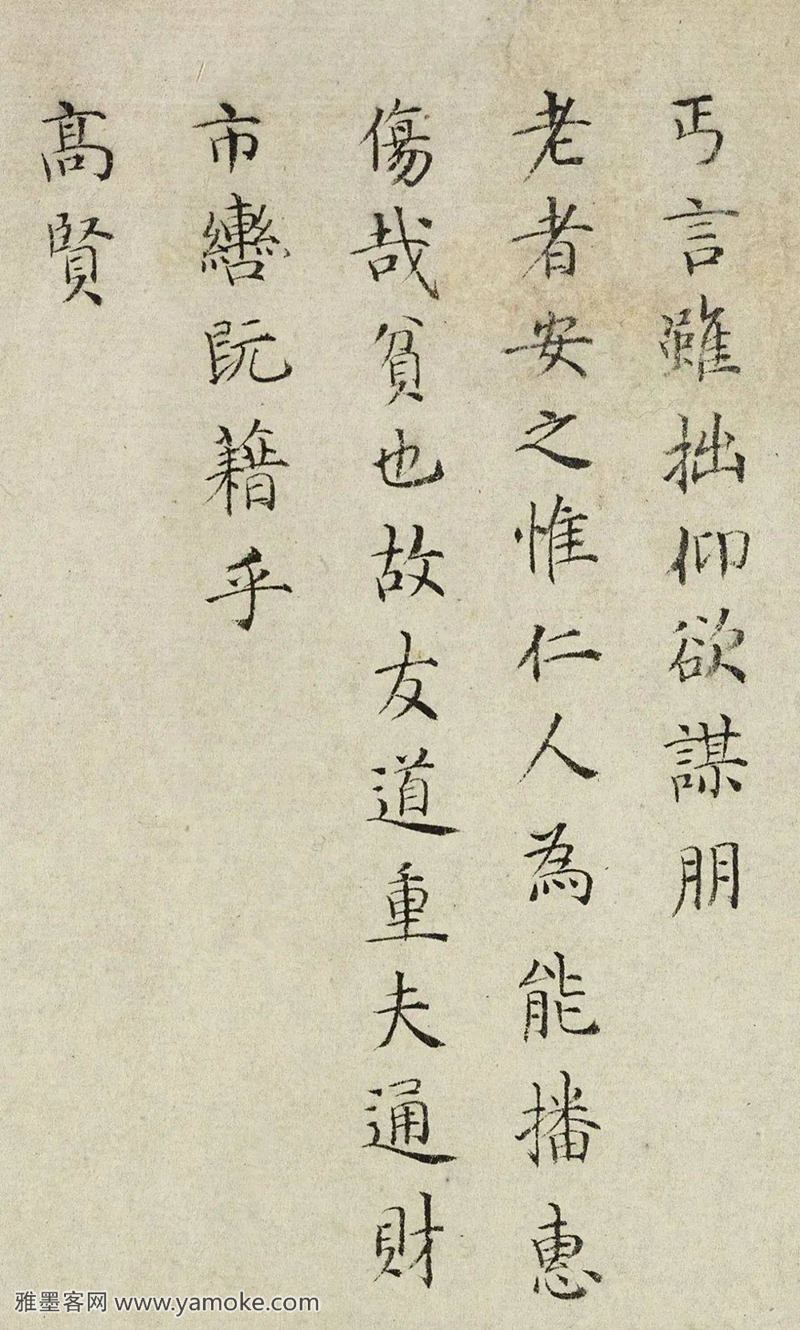 丐言雖拙仰欲謀朋
老者安之惟仁人為能播惠
傷哉貧也故友道重夫通財
市轡阮藉乎
髙賢
雅墨客网 www.yamoke.com